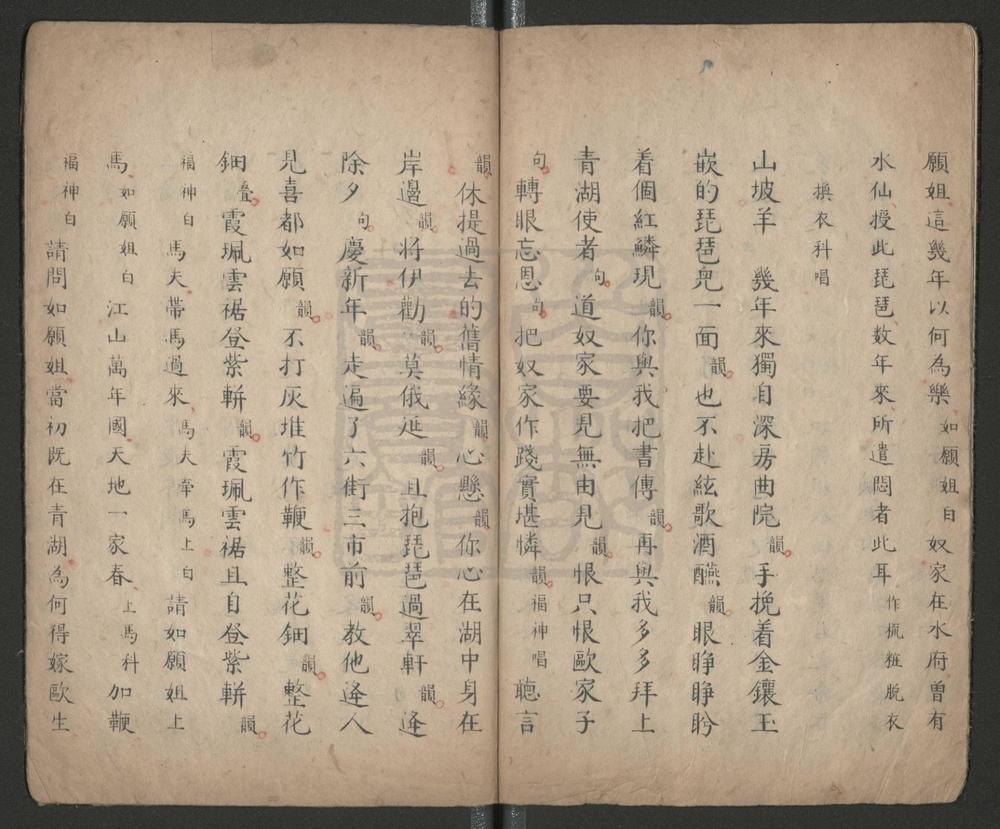 願姐這幾年以何為樂 如願姐白 奴家在水府曾有
水仙授此琵琶数年來所遣悶者此耳 作梳粧脫衣
換衣科唱
山坡羊 幾年來獨自深房曲院韻手挽着金鑲玉
嵌的琵琶兜一面韻也不赴絃歌酒醼韻眼睜睜盻
着個紅鱗現韻你與我把書傳韻再與我多多拜上
青湖使者句道奴家要見無由見韻恨只恨歐家子
句轉眼忘恩句把奴家作踐實堪憐韻福神唱 聽言
韻休提過去的舊情緣韻心懸韻你心在湖中身在
岸邊韻將伊勸韻莫俄延韻且抱琵琶過翠軒韻逢
除夕句慶新年韻走遍了六街三市前韻教他逢人
見喜都如願韻不打灰堆竹作鞭韻整花鈿韻整花
鈿疊霞珮雲裾登紫軿韻霞珮雲裾且自登紫軿韻
福神白 馬夫帶馬過來 馬夫牽馬上白 請如願姐上
馬 如願姐白 江山萬年國天地一家春 上馬科 加鞭
福神白 請問如願姐當初既在青湖為何得嫁歐生